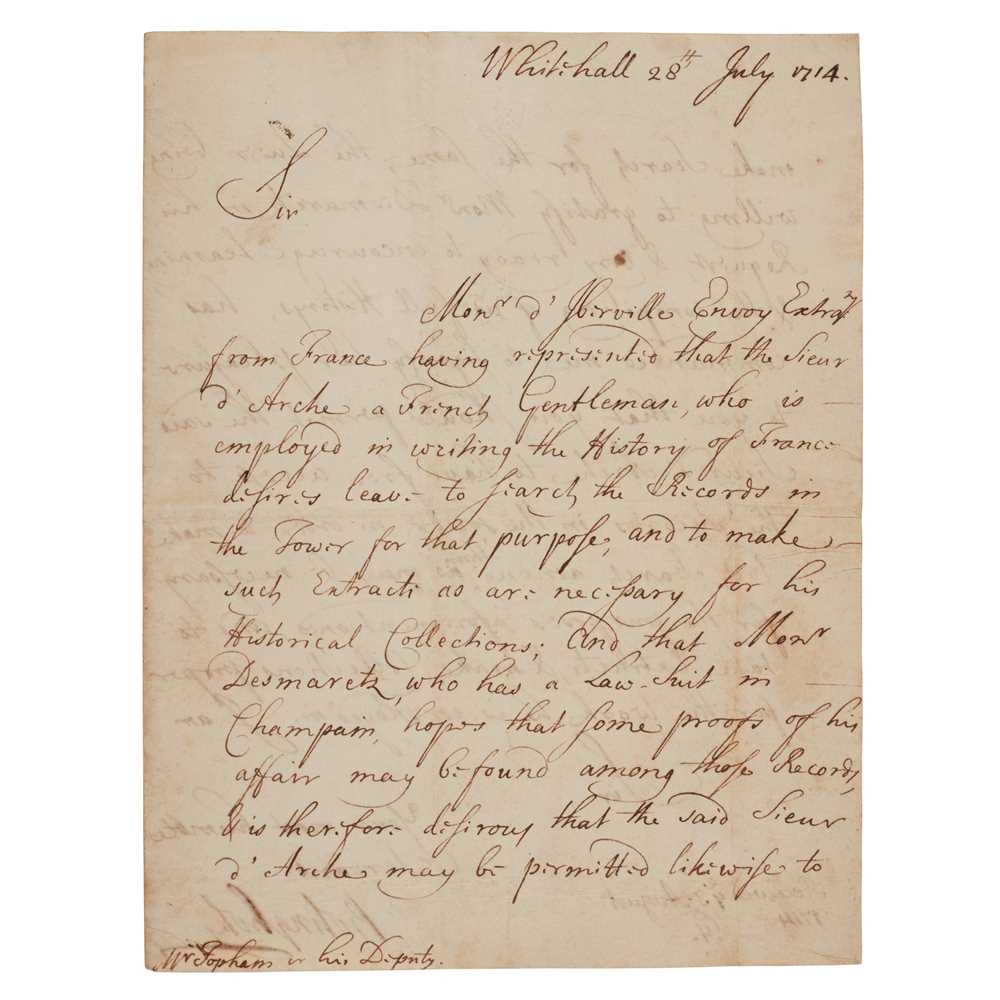 Whitehall 28th July 1714.
Sir
Monsr d'Iberville Envoy Extrary
from France having represented that the Sieur
d'Arche a French Gentleman, who is
employed in writing the History of France
desires leave to search the Records in
the Tower for that purpose, and to make
such Extracts as are necessary for his
Historical Collections; And that Monsr
Desmaretz, who has a Law-Suit in
Champain, hopes that some proofs of his
affair may be found among those Records,
& is therefore desirous that the said Sieur
d'Arche may be permitted likewise to
Mr Topham or his Deputy.